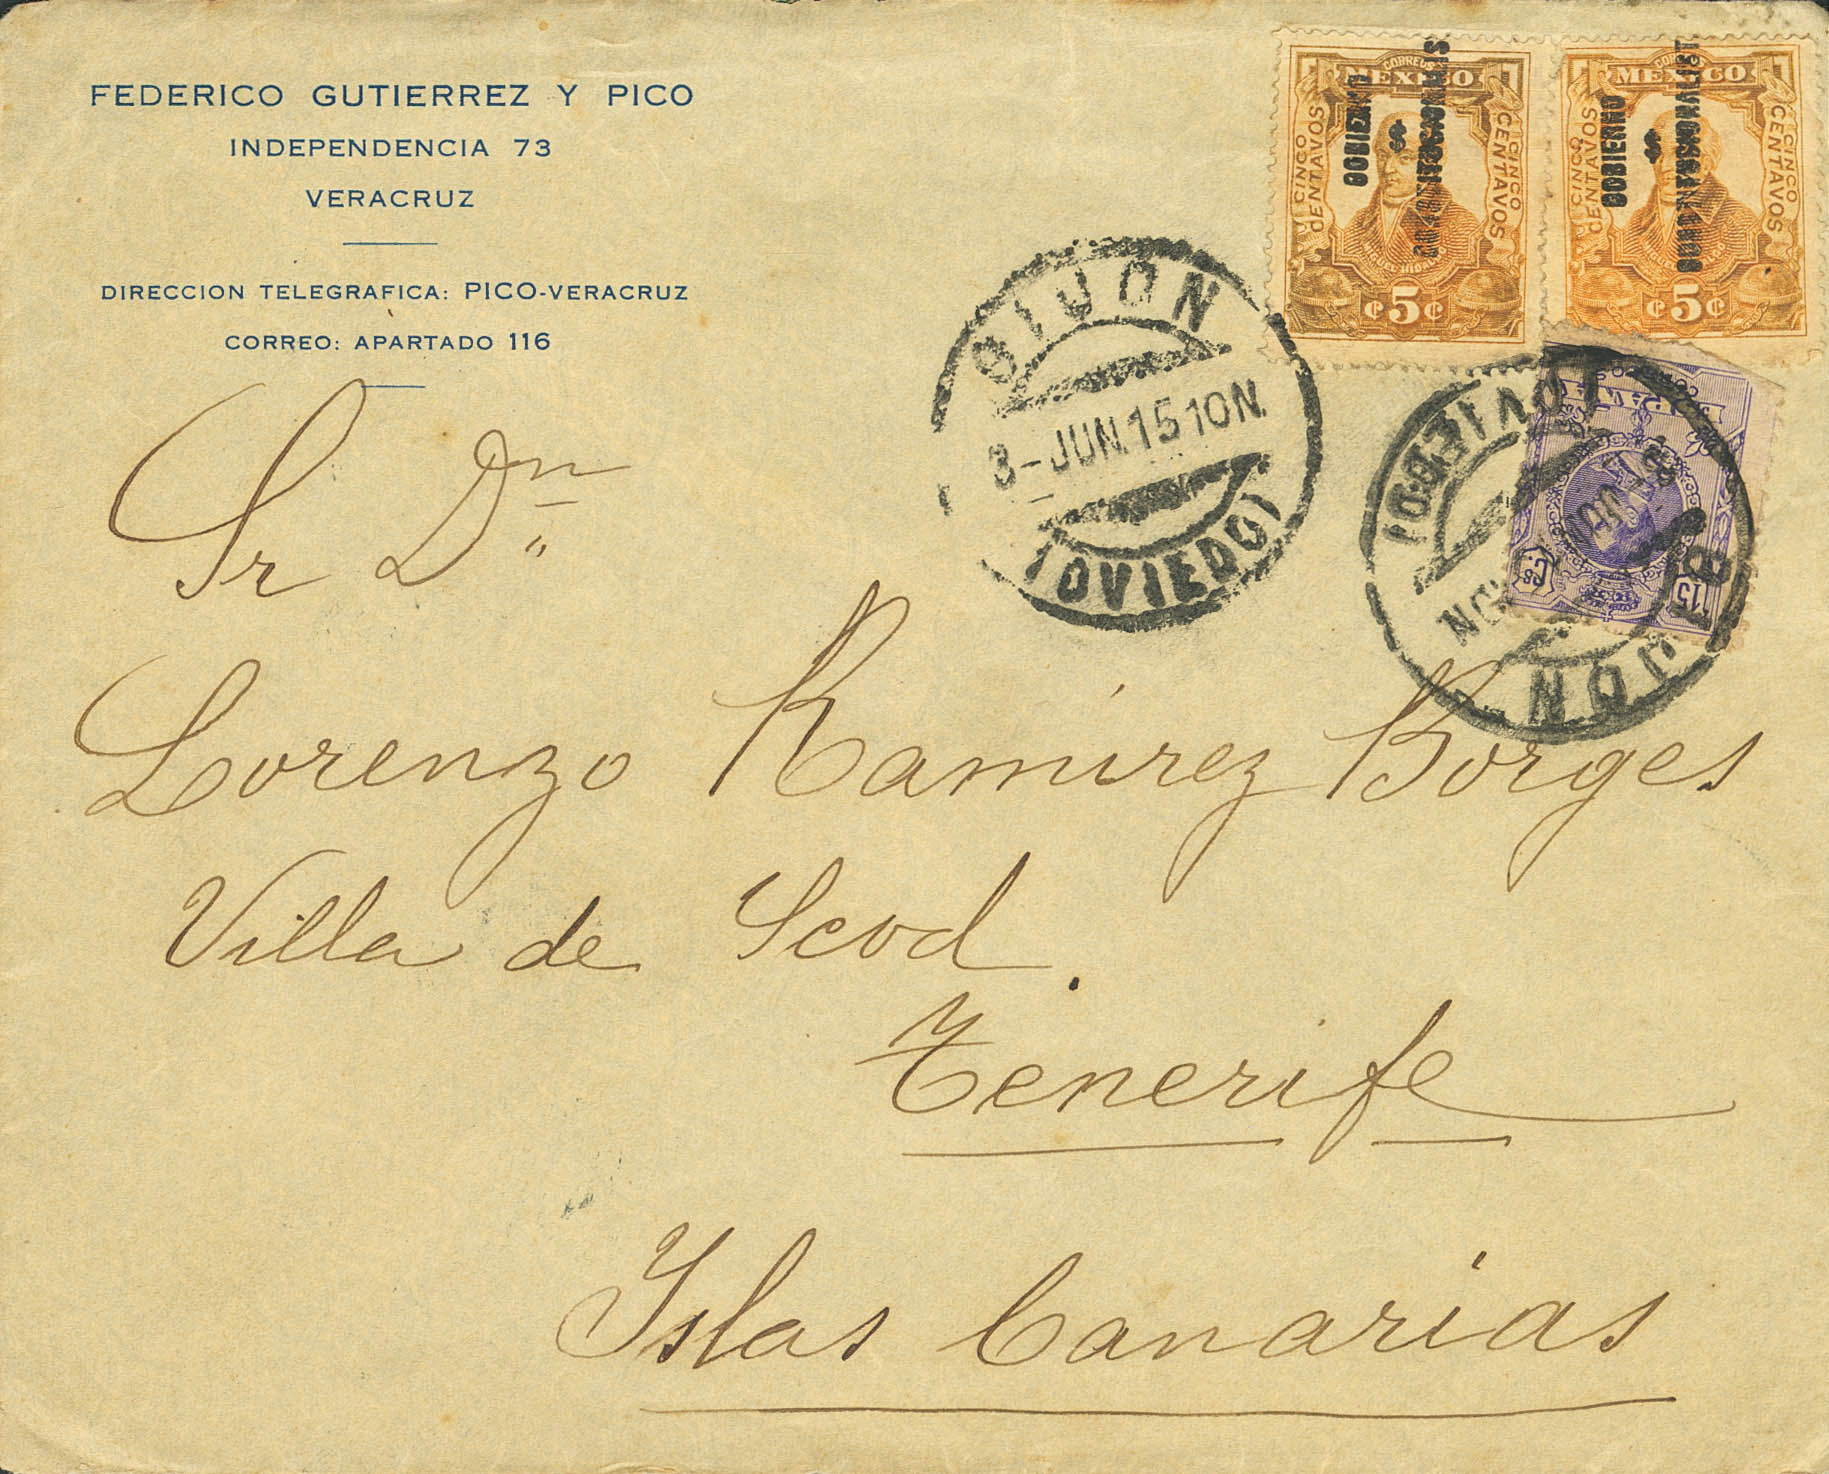 FEDERICO GUTIERREZ Y PICO
INDEPENDENCIA 73
VERACRUZ
DIRECCION TELEGRAFICA: PICO-VERACRUZ
CORREO: APARTADO 116
CORREOS
MEXICO
CINCO CENTAVOS
CINCO CENTAVOS
GOBIERNO
$
CONSTITUCIONALIS
MIGUEL HIDALGO
¢ 5 ¢
CORREOS
MEXICO
CINCO CENTAVOS
CINCO CENTAVOS
GOBIERNO
$
CONSTITUCIONALIST
¢ 5 ¢
GIJON
3-JUN.15 10N.
(OVIEDO)
ESPAÑA
15 Cs
GIJON
(OVIEDO)
Sr Dn
Lorenzo Ramirez Borges
Villa de Icod.
Tenerife
Islas Canarias